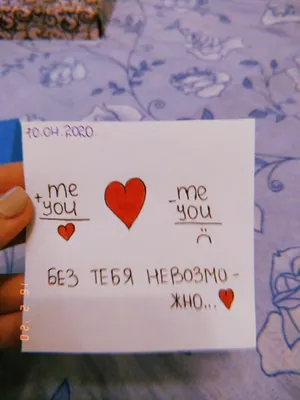 10.04.2020.
+ me
you
- me
you
БЕЗ ТЕБЯ НЕВОЗМО-
ЖНО...